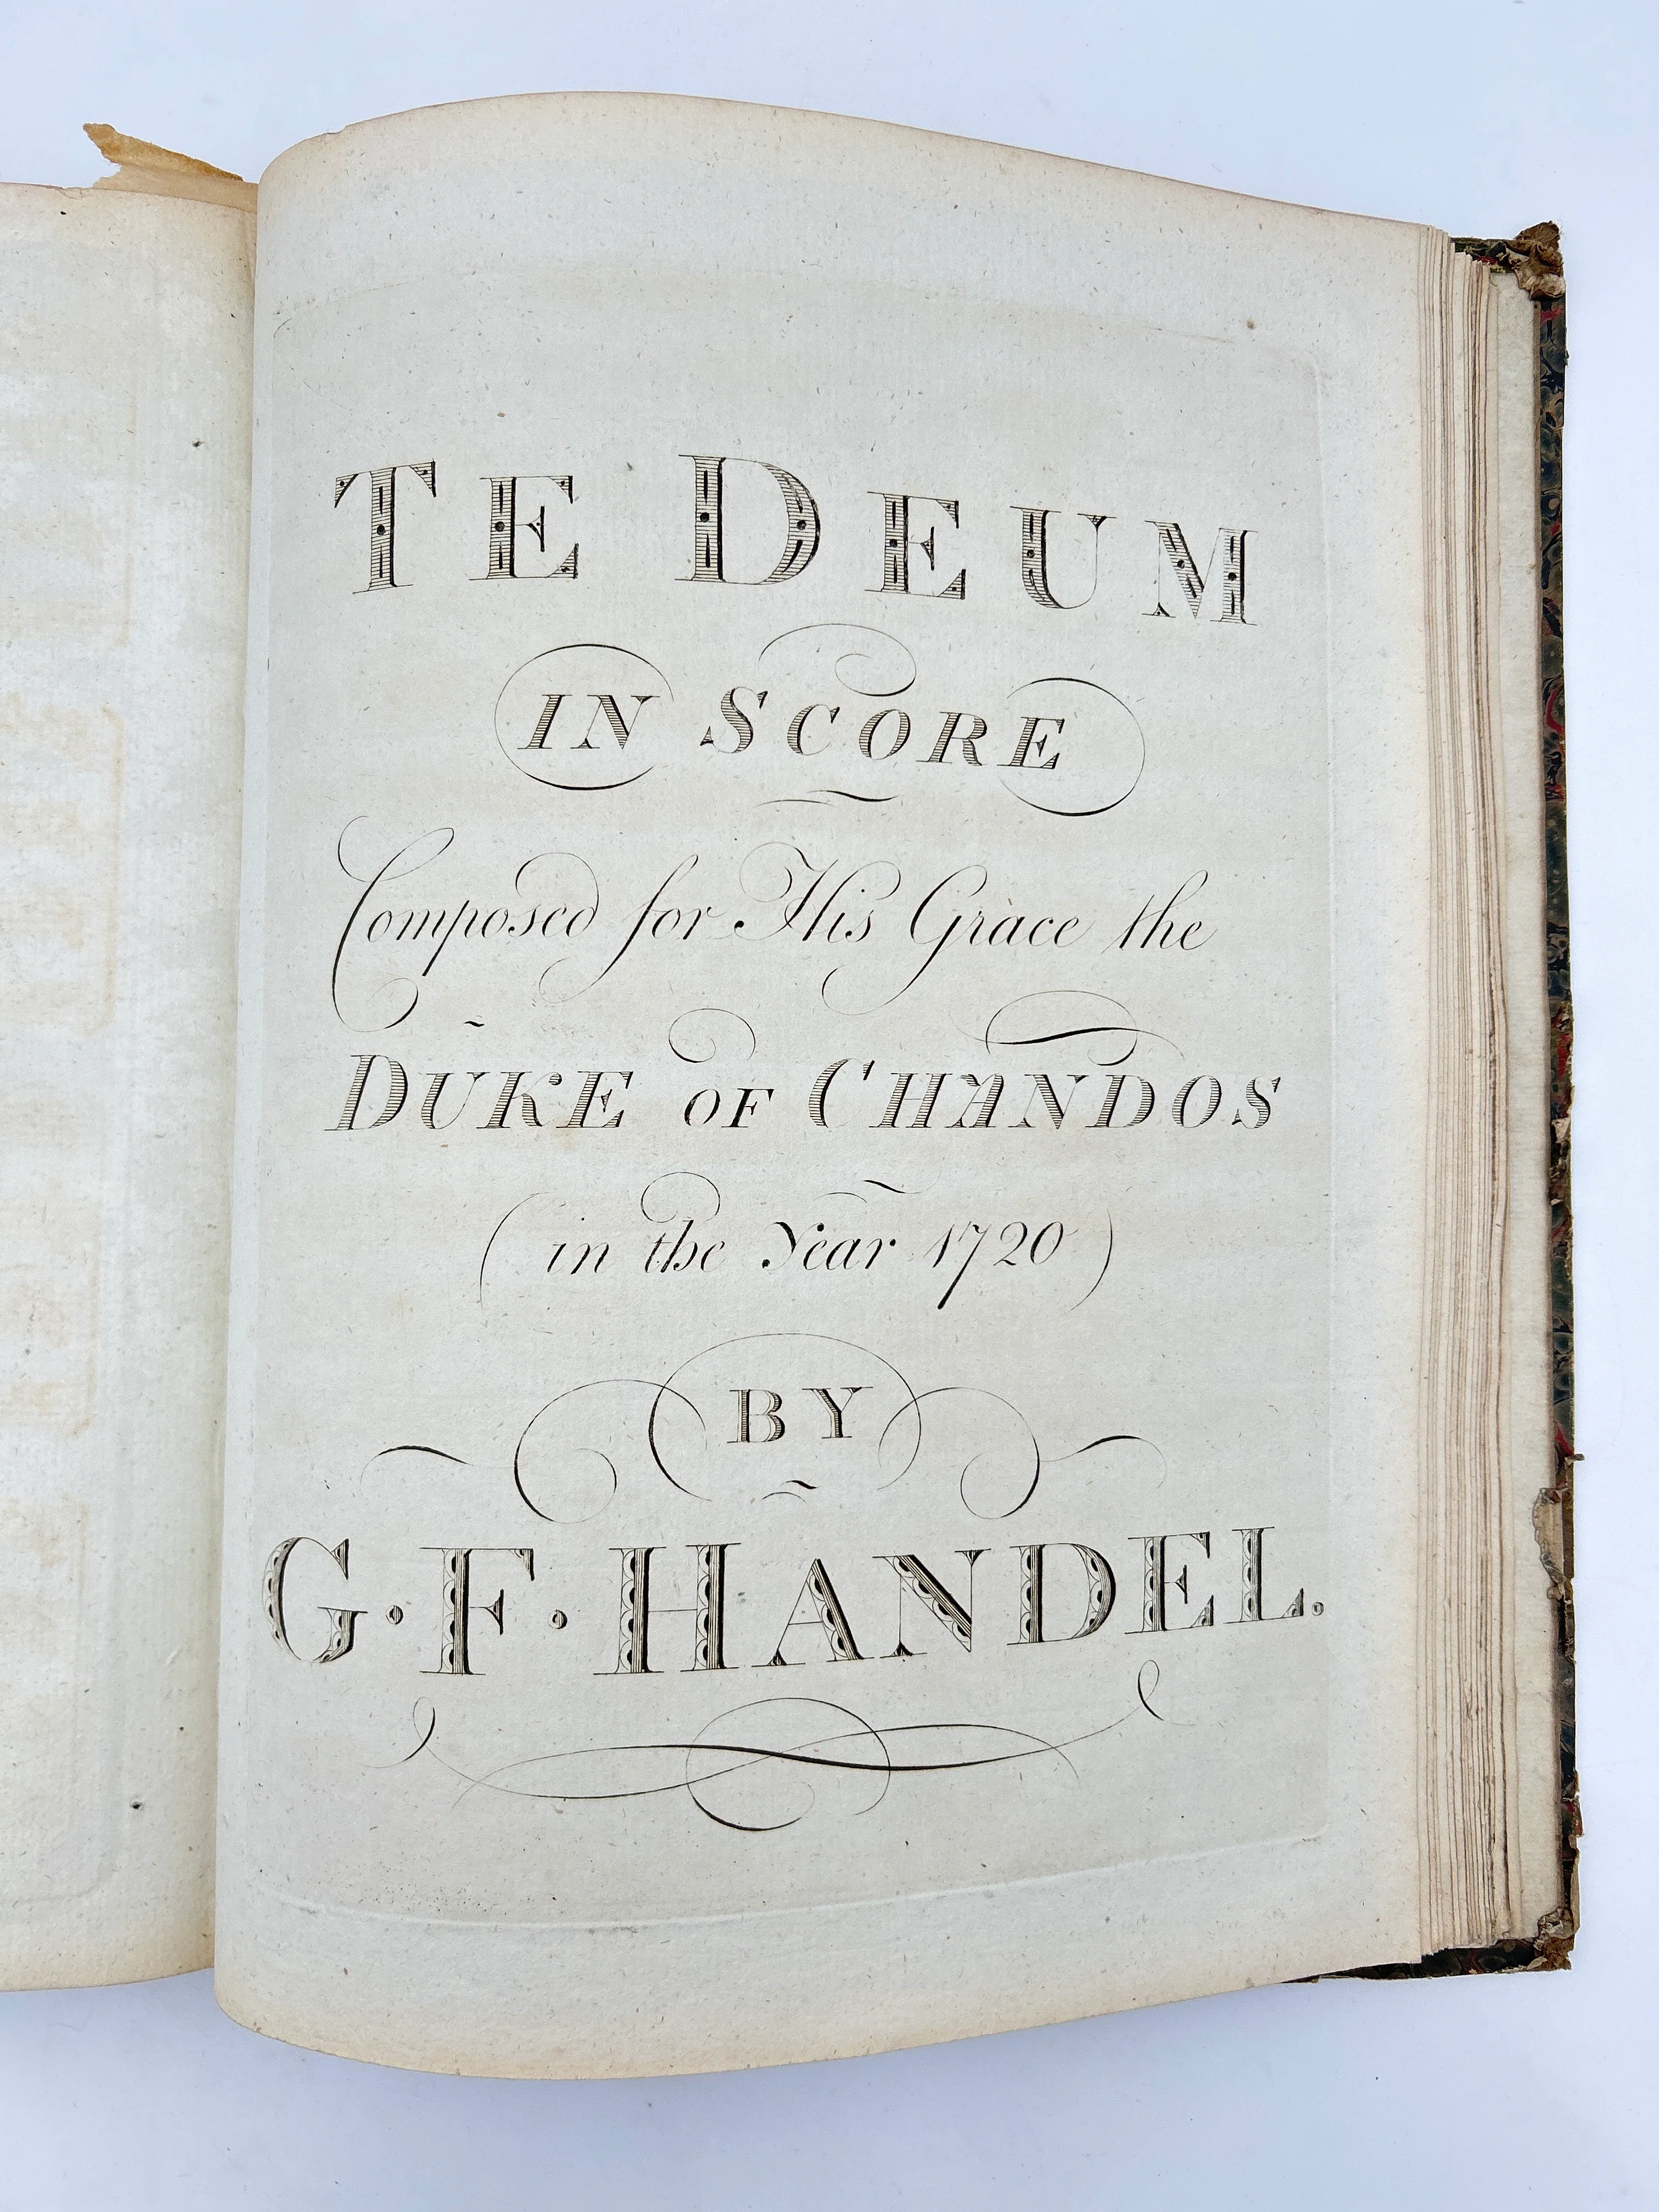 TE DEUM
IN SCORE
Composed for His Grace the
DUKE OF CHANDOS
(in the Year 1720)
BY
G. F. HANDEL.